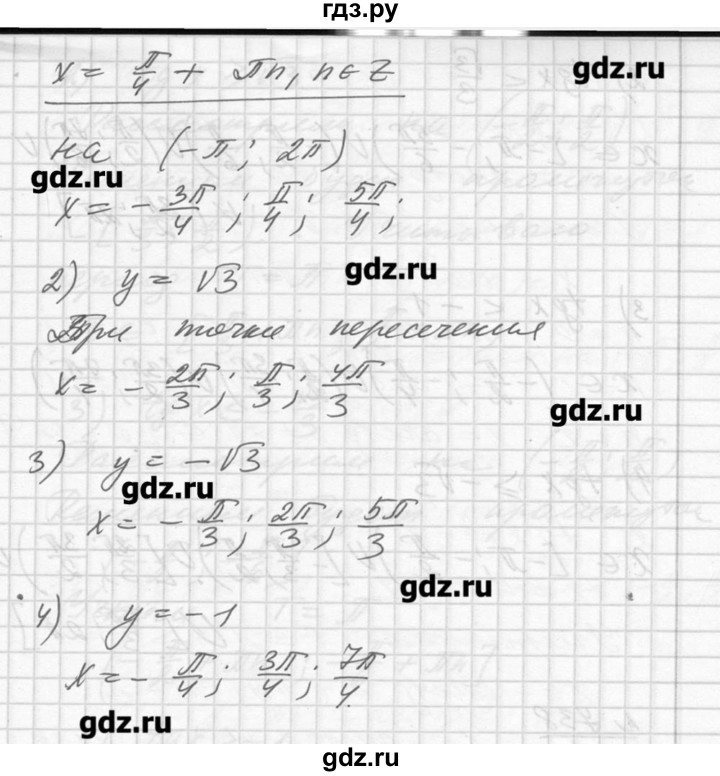 гдз.ру
x = π/4 + πn, n ∈ Z
gdz.ru
на (-π; 2π)
gdz.ru
x = - 3π/4; π/4; 5π/4;
gdz.ru
2) y = √3
Три точки пересечения
x = - 2π/3; π/3; 4π/3
gdz.ru
3) y = - √3
gdz.ru
x = - π/3; 2π/3; 5π/3
gdz.ru
4) y = - 1
x = - π/4; 3π/4; 7π/4.
gdz.ru
gdz.ru